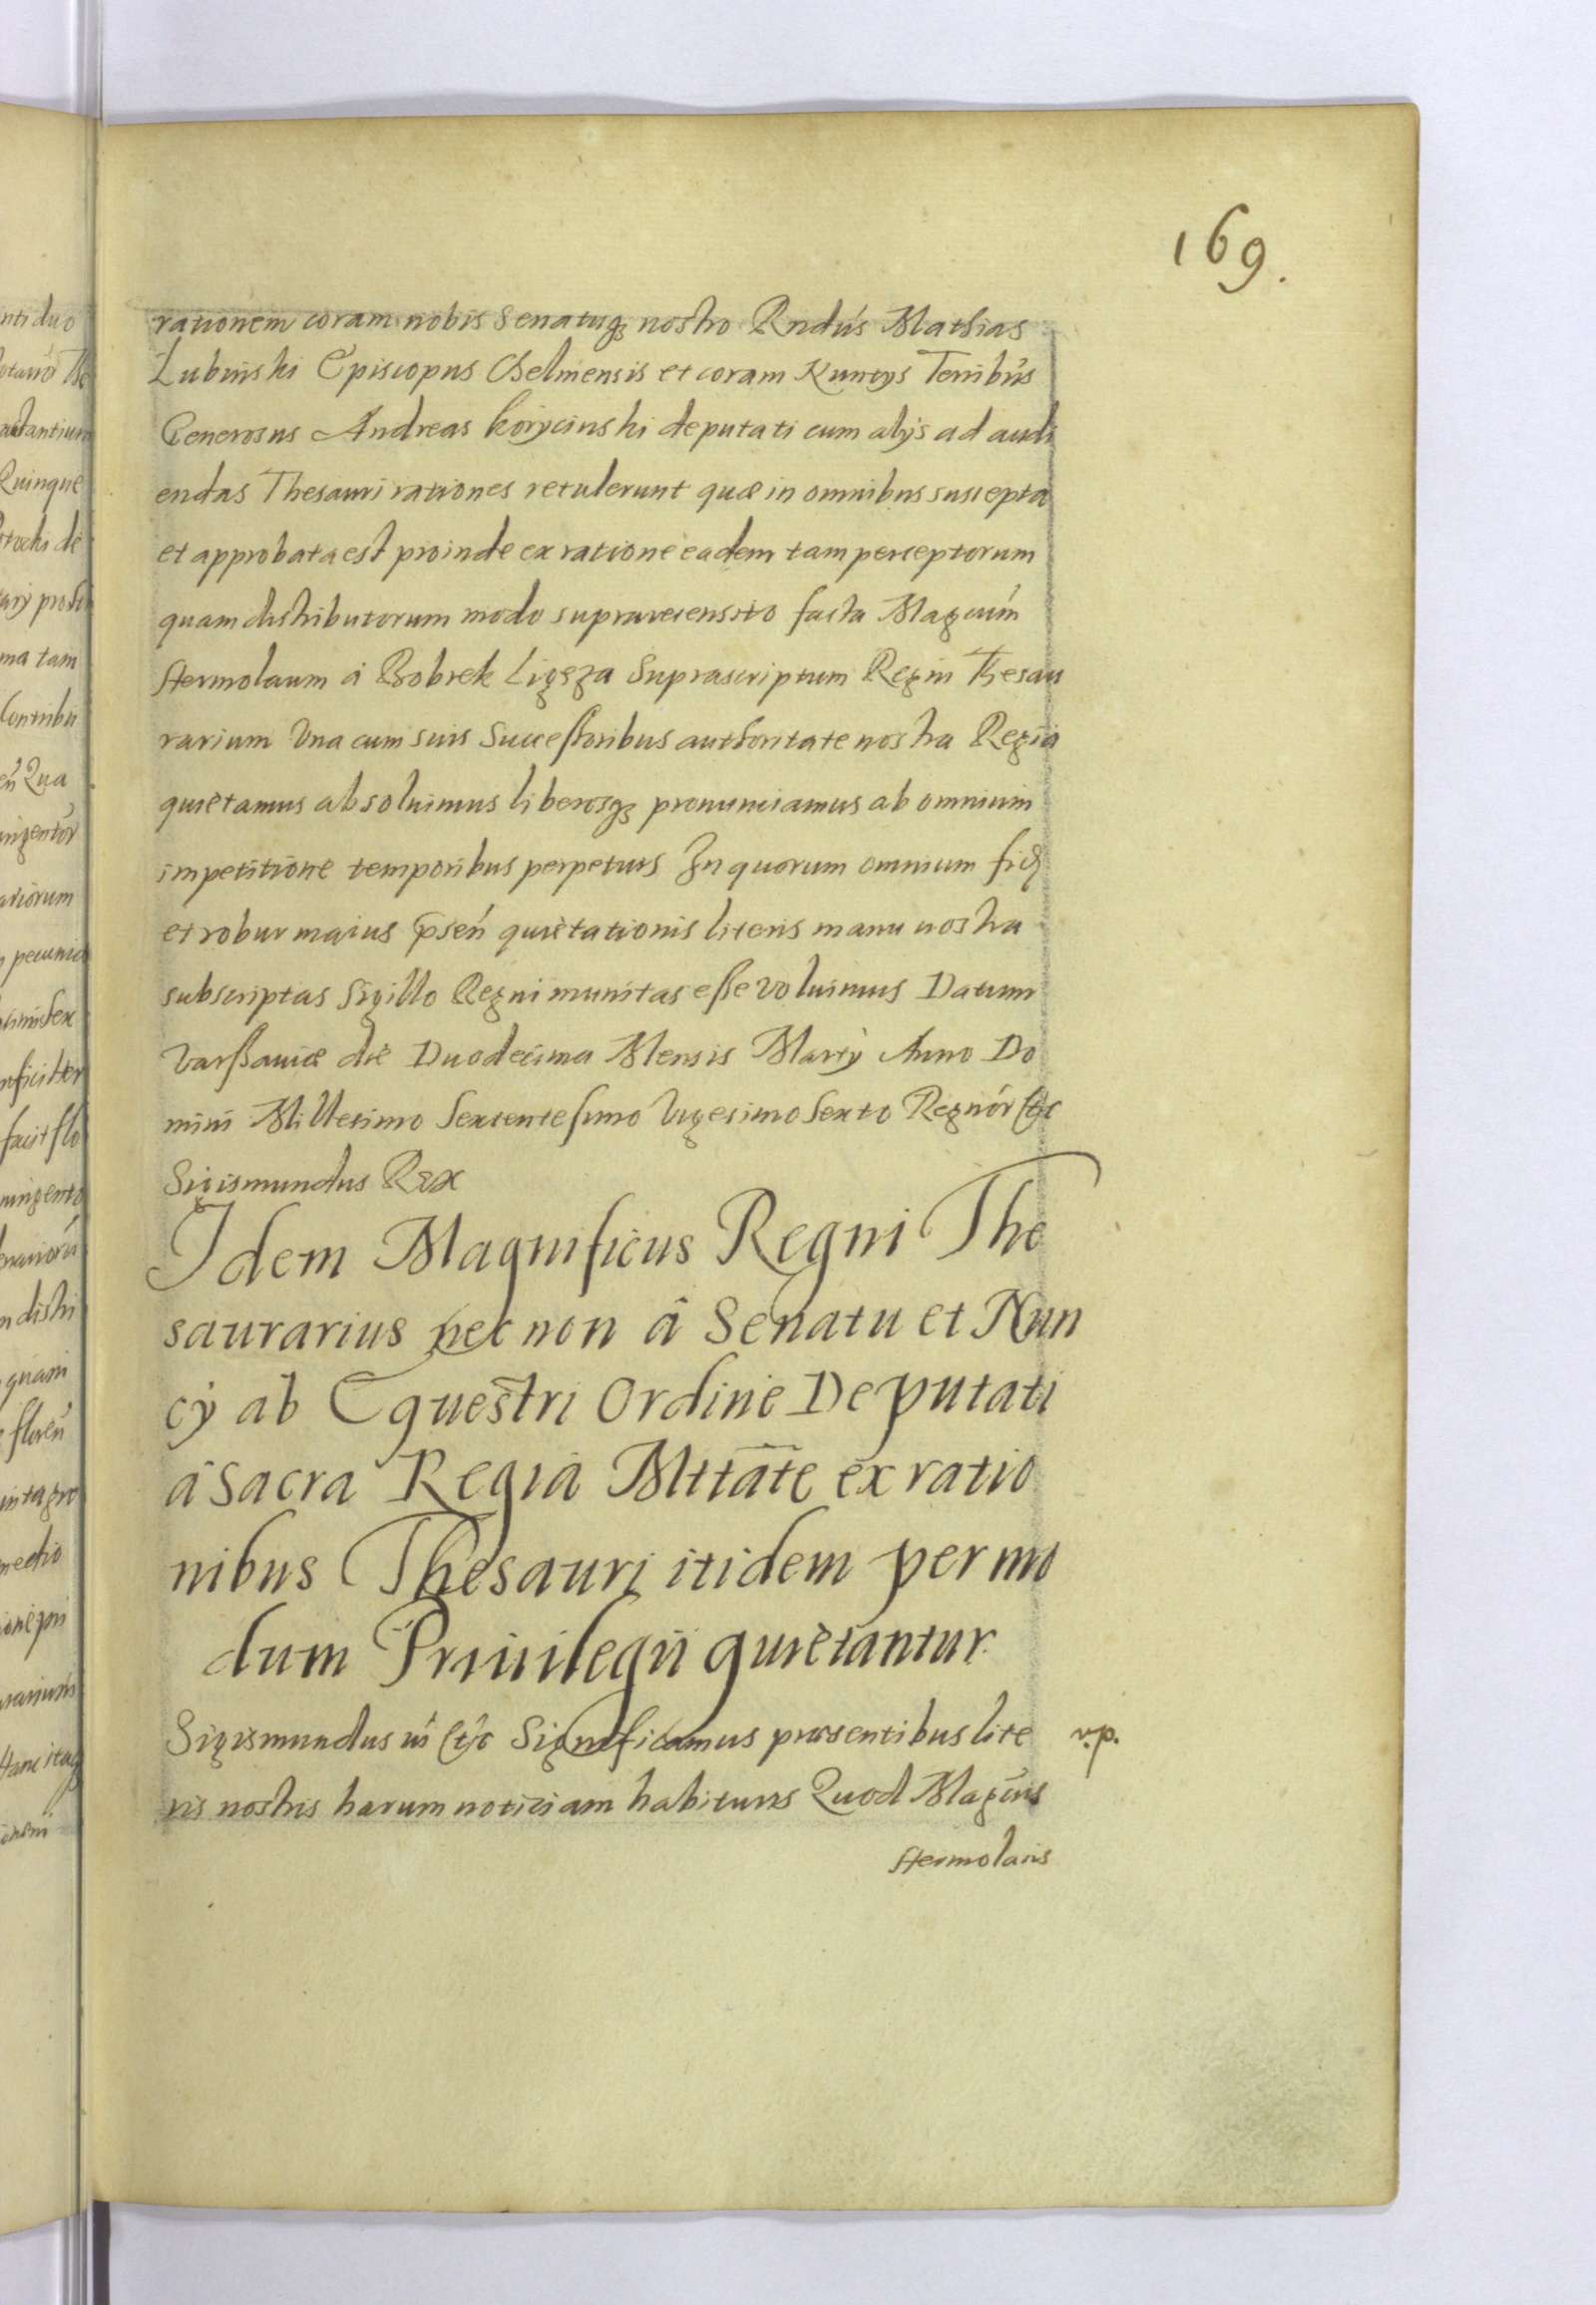 169.
rationem coram nobis Senatuq3 nostro Rndús Mathias
Lubinski Episcopus Chelmensis et coram Nuncys Terribús
Generosus Andreas Korycinski deputati cum alys ad audi
endas Thesauri rationes retulerunt quæ in omnibus suscepta
et approbata est proinde ex ratione eadem tam perceptorum
quam distributorum modo suprarecensito facta Magcúm
Hermolaum á Bobrek Ligęza Suprascriptum Regni Thesau
rarium Vna cum suis Successoribus authoritate nostra Regia
quietamus absoluimus liberosq3 pronunciamus ab omnium
impetitione temporibus perpetuis In quorum omnium fid
et robur maius psén quietationis literis manu nostra
subscriptas Sigillo Regni munitas esse voluimus Datum
Varssauiæ die Duodecima Mensis Marty Anno Do
mini Millesimo Sexcentesimo Vigesimo Sexto Regnór etc
Sigismundus Rex
Idem Magnificus Regni The
saurarius nec non â Senatu et Nun
cÿ ab Equestri Ordine Deputati
â Sacra Regia Mttāte ex ratio
nibus Thesauri itidem per mo
dum Priuilegii quietantur.
Sigismundus III etc Significamus præsentibus lite
ris nostris harum noticiam habituris Quod Magcús
v.p.
Hermolaus
nti duo
Quinque
ma tam
Contribu
Qua
facit flo
n distri
medio